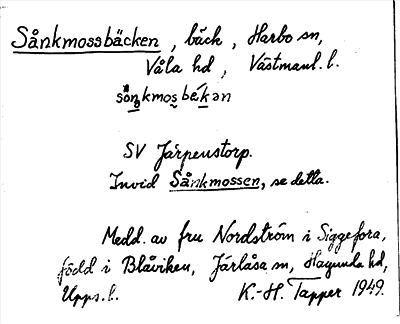 Sånkmossbäcken, bäck, Harbo sn,
Våla hd, Västmanl. l.
sånkmos bäkan
SV Järpenstorp.
Invid Sånkmossen, se detta.
Medd. av fru Nordström i Siggefora,
född i Blåviken, Järlåsa sn, Hagunda hd,
Upps. l. K.-H. Tapper 1949.